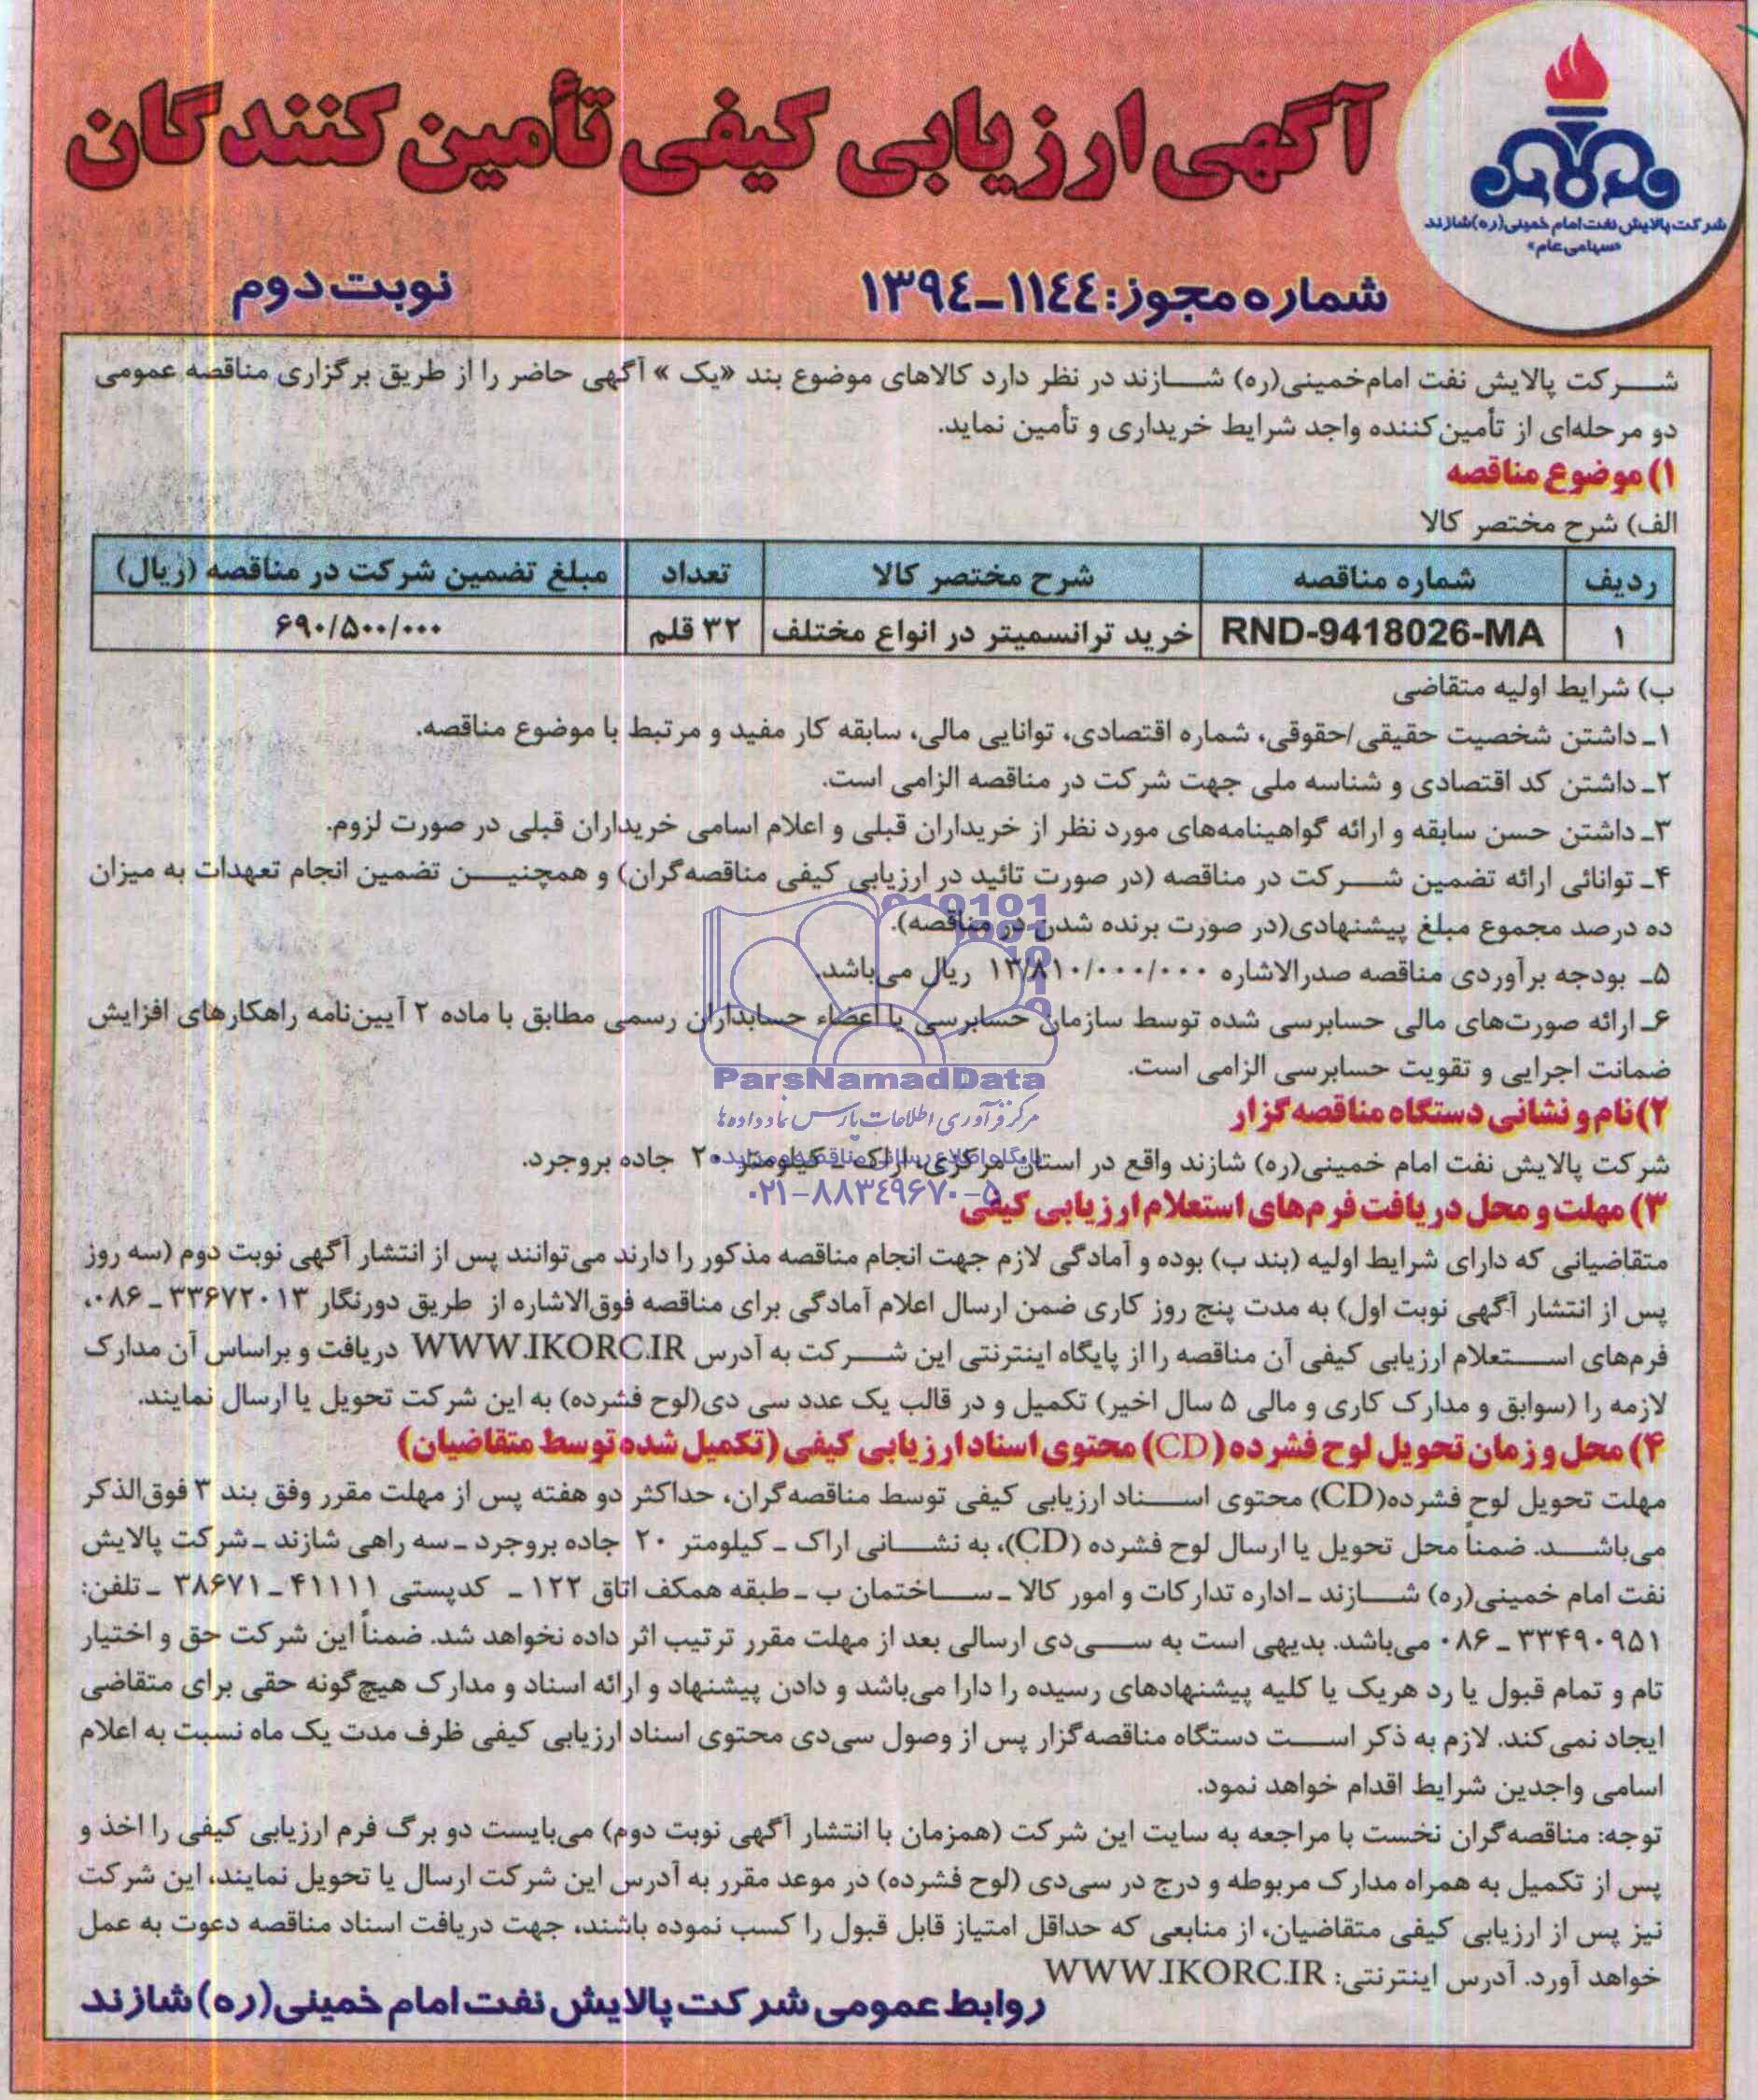 آگهی ارزیابی کیفی تأمین کنندگان
شرکت پالایش نفت امام خمینی(ره)شازند
«سهامی عام»
شماره مجوز: ۱۱۴۴-۱۳۹۴
نوبت دوم
شرکت پالایش نفت امام‌خمینی(ره) شازند در نظر دارد کالاهای موضوع بند «یک» آگهی حاضر را از طریق برگزاری مناقصه عمومی
دو مرحله‌ای از تأمین‌کننده واجد شرایط خریداری و تأمین نماید.
۱) موضوع مناقصه
الف) شرح مختصر کالا
ردیف شماره مناقصه شرح مختصر کالا تعداد مبلغ تضمین شرکت در مناقصه (ریال)
۱ RND-9418026-MA خرید ترانسمیتر در انواع مختلف ۳۲ قلم ۶۹۰/۵۰۰/۰۰۰
ب) شرایط اولیه متقاضی
۱ـ داشتن شخصیت حقیقی/حقوقی، شماره اقتصادی، توانایی مالی، سابقه کار مفید و مرتبط با موضوع مناقصه.
۲ـ داشتن کد اقتصادی و شناسه ملی جهت شرکت در مناقصه الزامی است.
۳ـ داشتن حسن سابقه و ارائه گواهینامه‌های مورد نظر از خریداران قبلی و اعلام اسامی خریداران قبلی در صورت لزوم.
۴ـ توانائی ارائه تضمین شرکت در مناقصه (در صورت تائید در ارزیابی کیفی مناقصه‌گران) و همچنین تضمین انجام تعهدات به میزان
ده درصد مجموع مبلغ پیشنهادی(در صورت برنده شدن در مناقصه).
۵ـ بودجه برآوردی مناقصه صدرالاشاره ۱۳/۸۱۰/۰۰۰/۰۰۰ ریال می‌باشد.
۶ـ ارائه صورت‌های مالی حسابرسی شده توسط سازمان حسابرسی یا اعضاء حسابداران رسمی مطابق با ماده ۲ آیین‌نامه راهکارهای افزایش
ضمانت اجرایی و تقویت حسابرسی الزامی است.
ParsNamadData
مرکز فرآوری اطلاعات پارس نماد داده‌ها
۲)نام و نشانی دستگاه مناقصه‌گزار
شرکت پالایش نفت امام خمینی(ره) شازند واقع در استان مرکزی، اراک ـ کیلومتر ۲۰ جاده بروجرد.
پایگاه اطلاع رسانی مناقصه و مزایده
۰۲۱-۸۸۳۴۹۶۷۰-۵
۳) مهلت و محل دریافت فرم‌های استعلام ارزیابی کیفی
متقاضیانی که دارای شرایط اولیه (بند ب) بوده و آمادگی لازم جهت انجام مناقصه مذکور را دارند می‌توانند پس از انتشار آگهی نوبت دوم (سه روز
پس از انتشار آگهی نوبت اول) به مدت پنج روز کاری ضمن ارسال اعلام آمادگی برای مناقصه فوق‌الاشاره از طریق دورنگار ۳۳۶۷۲۰۱۳ ـ ۰۸۶،
فرم‌های استعلام ارزیابی کیفی آن مناقصه را از پایگاه اینترنتی این شرکت به آدرس WWW.IKORC.IR دریافت و براساس آن مدارک
لازمه را (سوابق و مدارک کاری و مالی ۵ سال اخیر) تکمیل و در قالب یک عدد سی دی(لوح فشرده) به این شرکت تحویل یا ارسال نمایند.
۴) محل و زمان تحویل لوح فشرده (CD) محتوی اسناد ارزیابی کیفی (تکمیل شده توسط متقاضیان)
مهلت تحویل لوح فشرده(CD) محتوی اسناد ارزیابی کیفی توسط مناقصه‌گران، حداکثر دو هفته پس از مهلت مقرر وفق بند ۳ فوق‌الذکر
می‌باشد. ضمناً محل تحویل یا ارسال لوح فشرده (CD)، به نشانی اراک ـ کیلومتر ۲۰ جاده بروجرد ـ سه راهی شازند ـ شرکت پالایش
نفت امام خمینی(ره) شازند ـ اداره تدارکات و امور کالا ـ ساختمان ب ـ طبقه همکف اتاق ۱۲۲ ـ کدپستی ۴۱۱۱۱ ـ ۳۸۶۷۱ ـ تلفن:
۳۳۴۹۰۹۵۱ ـ ۰۸۶ می‌باشد. بدیهی است به سی‌دی ارسالی بعد از مهلت مقرر ترتیب اثر داده نخواهد شد. ضمناً این شرکت حق و اختیار
تام و تمام قبول یا رد هریک یا کلیه پیشنهادهای رسیده را دارا می‌باشد و دادن پیشنهاد و ارائه اسناد و مدارک هیچ‌گونه حقی برای متقاضی
ایجاد نمی‌کند. لازم به ذکر است دستگاه مناقصه‌گزار پس از وصول سی‌دی محتوی اسناد ارزیابی کیفی ظرف مدت یک ماه نسبت به اعلام
اسامی واجدین شرایط اقدام خواهد نمود.
توجه: مناقصه‌گران نخست با مراجعه به سایت این شرکت (همزمان با انتشار آگهی نوبت دوم) می‌بایست دو برگ فرم ارزیابی کیفی را اخذ و
پس از تکمیل به همراه مدارک مربوطه و درج در سی‌دی (لوح فشرده) در موعد مقرر به آدرس این شرکت ارسال یا تحویل نمایند، این شرکت
نیز پس از ارزیابی کیفی متقاضیان، از منابعی که حداقل امتیاز قابل قبول را کسب نموده باشند، جهت دریافت اسناد مناقصه دعوت به عمل
خواهد آورد. آدرس اینترنتی: WWW.IKORC.IR
روابط عمومی شرکت پالایش نفت امام خمینی(ره) شازند